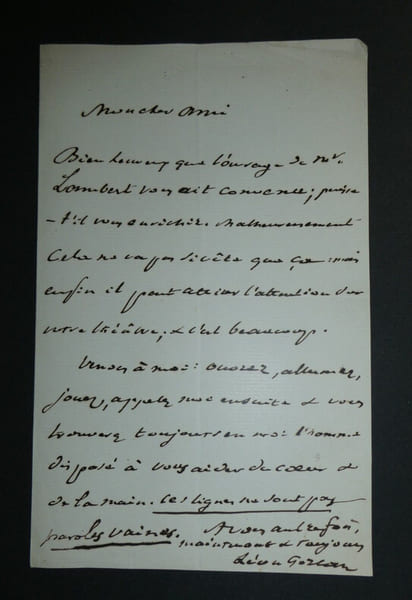 Mon cher Ami
Bien heureux que l'ouvrage de Mr.
Lambert vous ait convenu; puisse
-t'il vous enrichir. Malheureusement
Cela ne va pas si vite que ça mais
enfin il peut attirer l'attention sur
votre théâtre, & c'est beaucoup.
Venons à moi: ouvrez, allumez,
jouez, appelez moi ensuite & vous
trouverez toujours en moi l'homme
disposé à vous aider du cœur &
de la main. Ces lignes ne sont pas
paroles vaines. A vous autrefois,
maintenant & toujours
Léon Gozlan